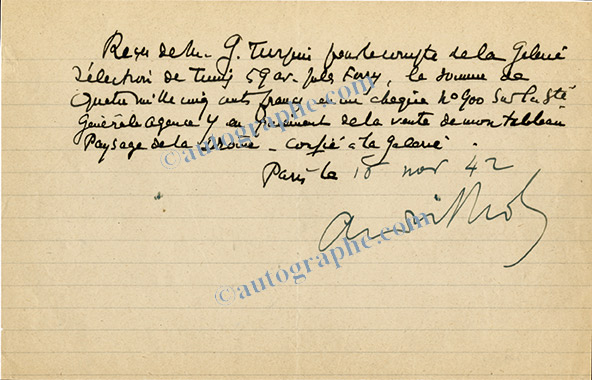 Reçu de M. G. Turpin pour le compte de la Galerie
Sélection de Tunis 59 av. Jules Ferry, la somme de
Quatre mille cinq cents francs en un chèque No 900 sur la Sté
Générale Agence Y en paiement de la vente de mon tableau
Paysage de la Drôme - confié à la Galerie.
Paris le 18 nov 42
©autographe.com
©autographe.com